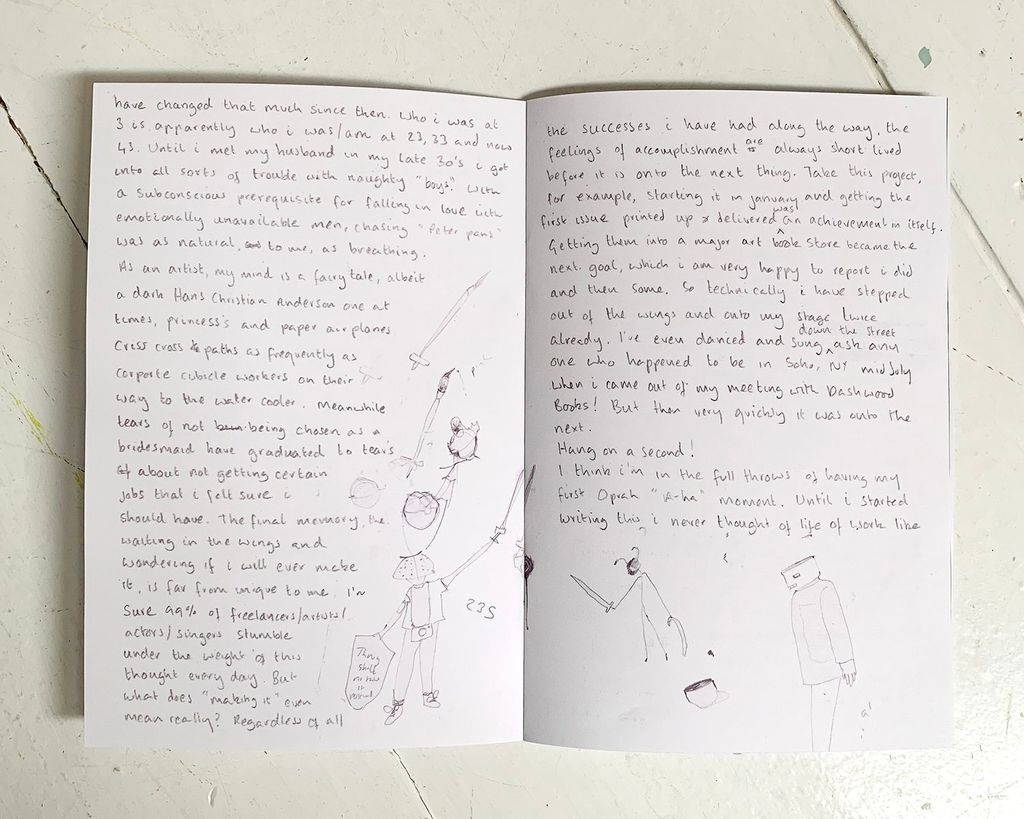 have changed that much since then. Who i was at
3 is apparently who i was/am at 23, 33 and now
43. Until i met my husband in my late 30's i got
into all sorts of trouble with naughty "boys". With
a subconscious prerequisite for falling in love with
emotionally unavailable men, chasing "Peter pans"
was as natural, to me, as breathing.
As an artist, my mind is a fairytale, albeit
a dark Hans Christian Anderson one at
times, princess's and paper airplanes
criss cross paths as frequently as
corporte cubicle workers on their
way to the water cooler. Meanwhile
tears of not being chosen as a
bridesmaid have graduated to tears
about not getting certain
jobs that i felt sure i
should have. The final memory, the
waiting in the wings and
wondering if i will ever make
it, is far from unique to me. I'm
Sure 99% of freelancers/artists/
actors/singers stumble
under the weight of this
thought every day. But
what does "making it" even
mean really? Regardless of all
235
the successes i have had along the way, the
feelings of accomplishment are always short lived
before it is onto the next thing. Take this project,
for example, starting it in january and getting the
first issue printed up & delivered was an achievement in itself.
Getting them into a major art book Store became the
next goal, which i am very happy to report i did
and then some. So technically i have stepped
out of the wings and onto my stage twice
already. I've even danced and sung down the street ask any
one who happened to be in Soho, NY mid July
when i came out of my meeting with Dashwood
Books! But then very quickly it was onto the
next.
Hang on a second!
I think i'm in the full throws of having my
first Oprah "A-ha" moment. Until i started
writing this i never thought of life of work like